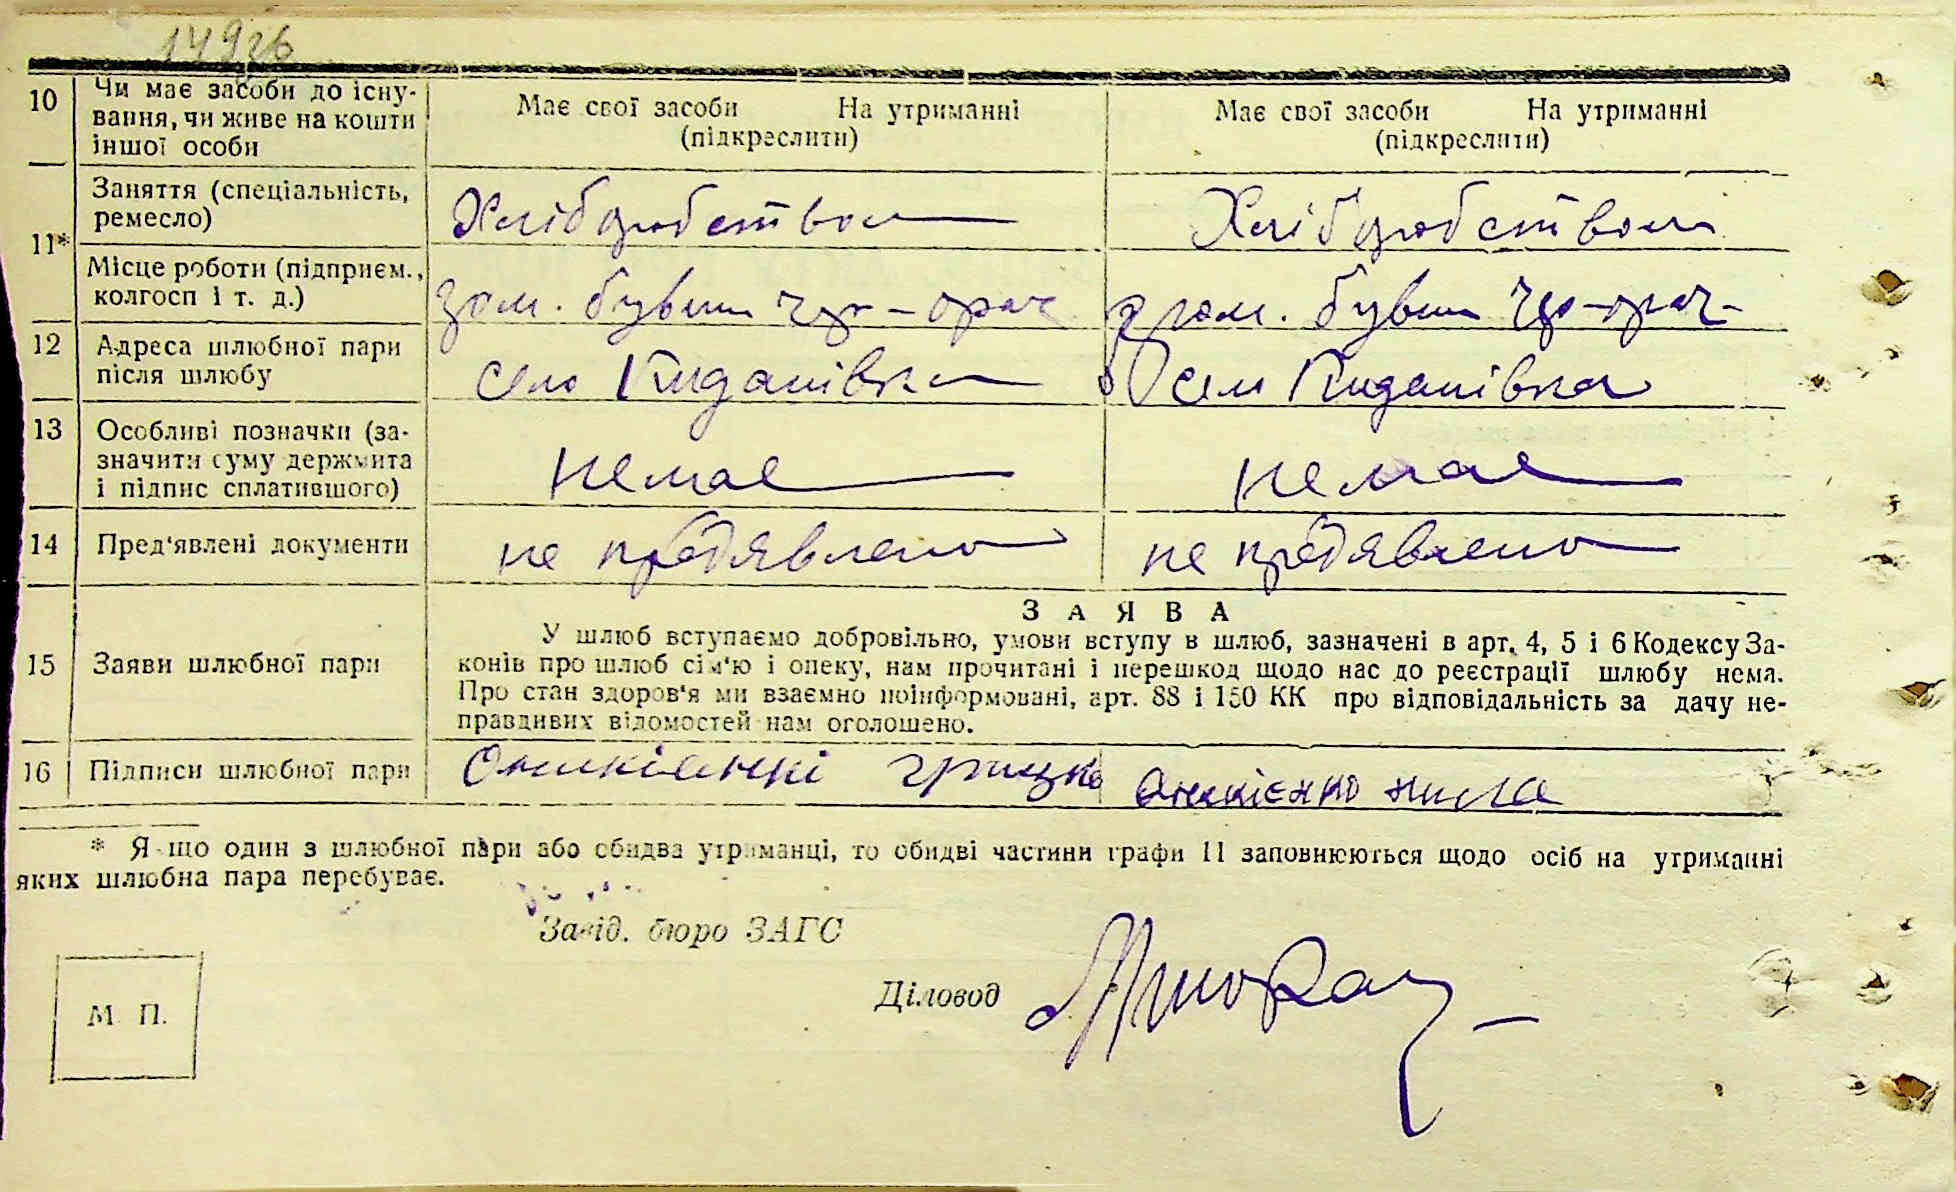 14926
10 Чи має засоби до існу-
вання, чи живе на кошти
іншої особи
Має свої засоби На утриманні
(підкреслити)
Має свої засоби На утриманні
(підкреслити)
11*
Заняття (спеціальність,
ремесло)
Хліборобством
Хліборобством
Місце роботи (підприєм.,
колгосп і т. д.)
гром. бувш
гром. бувш
12 Адреса шлюбної пари
після шлюбу
село Киданівка
село Киданівка
13 Особливі позначки (за-
значити суму держмита
і підпис сплатившого)
немає
немає
14 Пред'явлені документи
не предявлено
не предявлено
15 Заяви шлюбної пари
ЗАЯВА
У шлюб вступаємо добровільно, умови вступу в шлюб, зазначені в арт. 4, 5 і 6 Кодексу За-
конів про шлюб сім'ю і опеку, нам прочитані і перешкод щодо нас до реєстрації шлюбу нема.
Про стан здоров'я ми взаємно поінформовані, арт. 88 і 150 КК про відповідальність за дачу не-
правдивих відомостей нам оголошено.
16 Підписи шлюбної пари
* Якщо один з шлюбної пари або обидва утриманці, то обидві частини графи 11 заповнюються щодо осіб на утриманні
яких шлюбна пара перебуває.
Завід. бюро ЗАГС
Діловод
М. П.